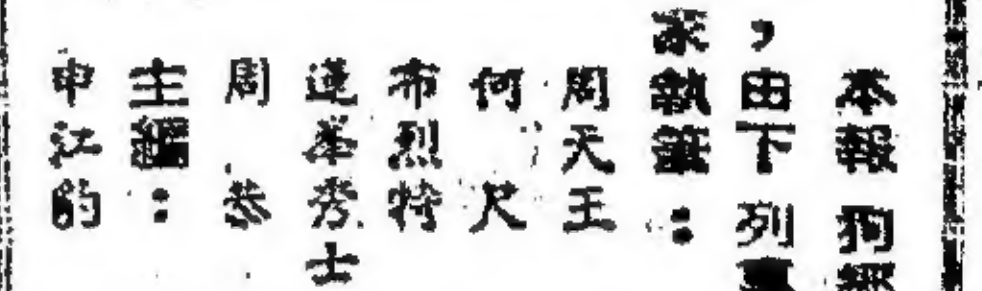 本報狗經
，由下列專
家執筆：
周天王
何尺
布烈特
蓬峯秀士
周恭
主編：
申江的